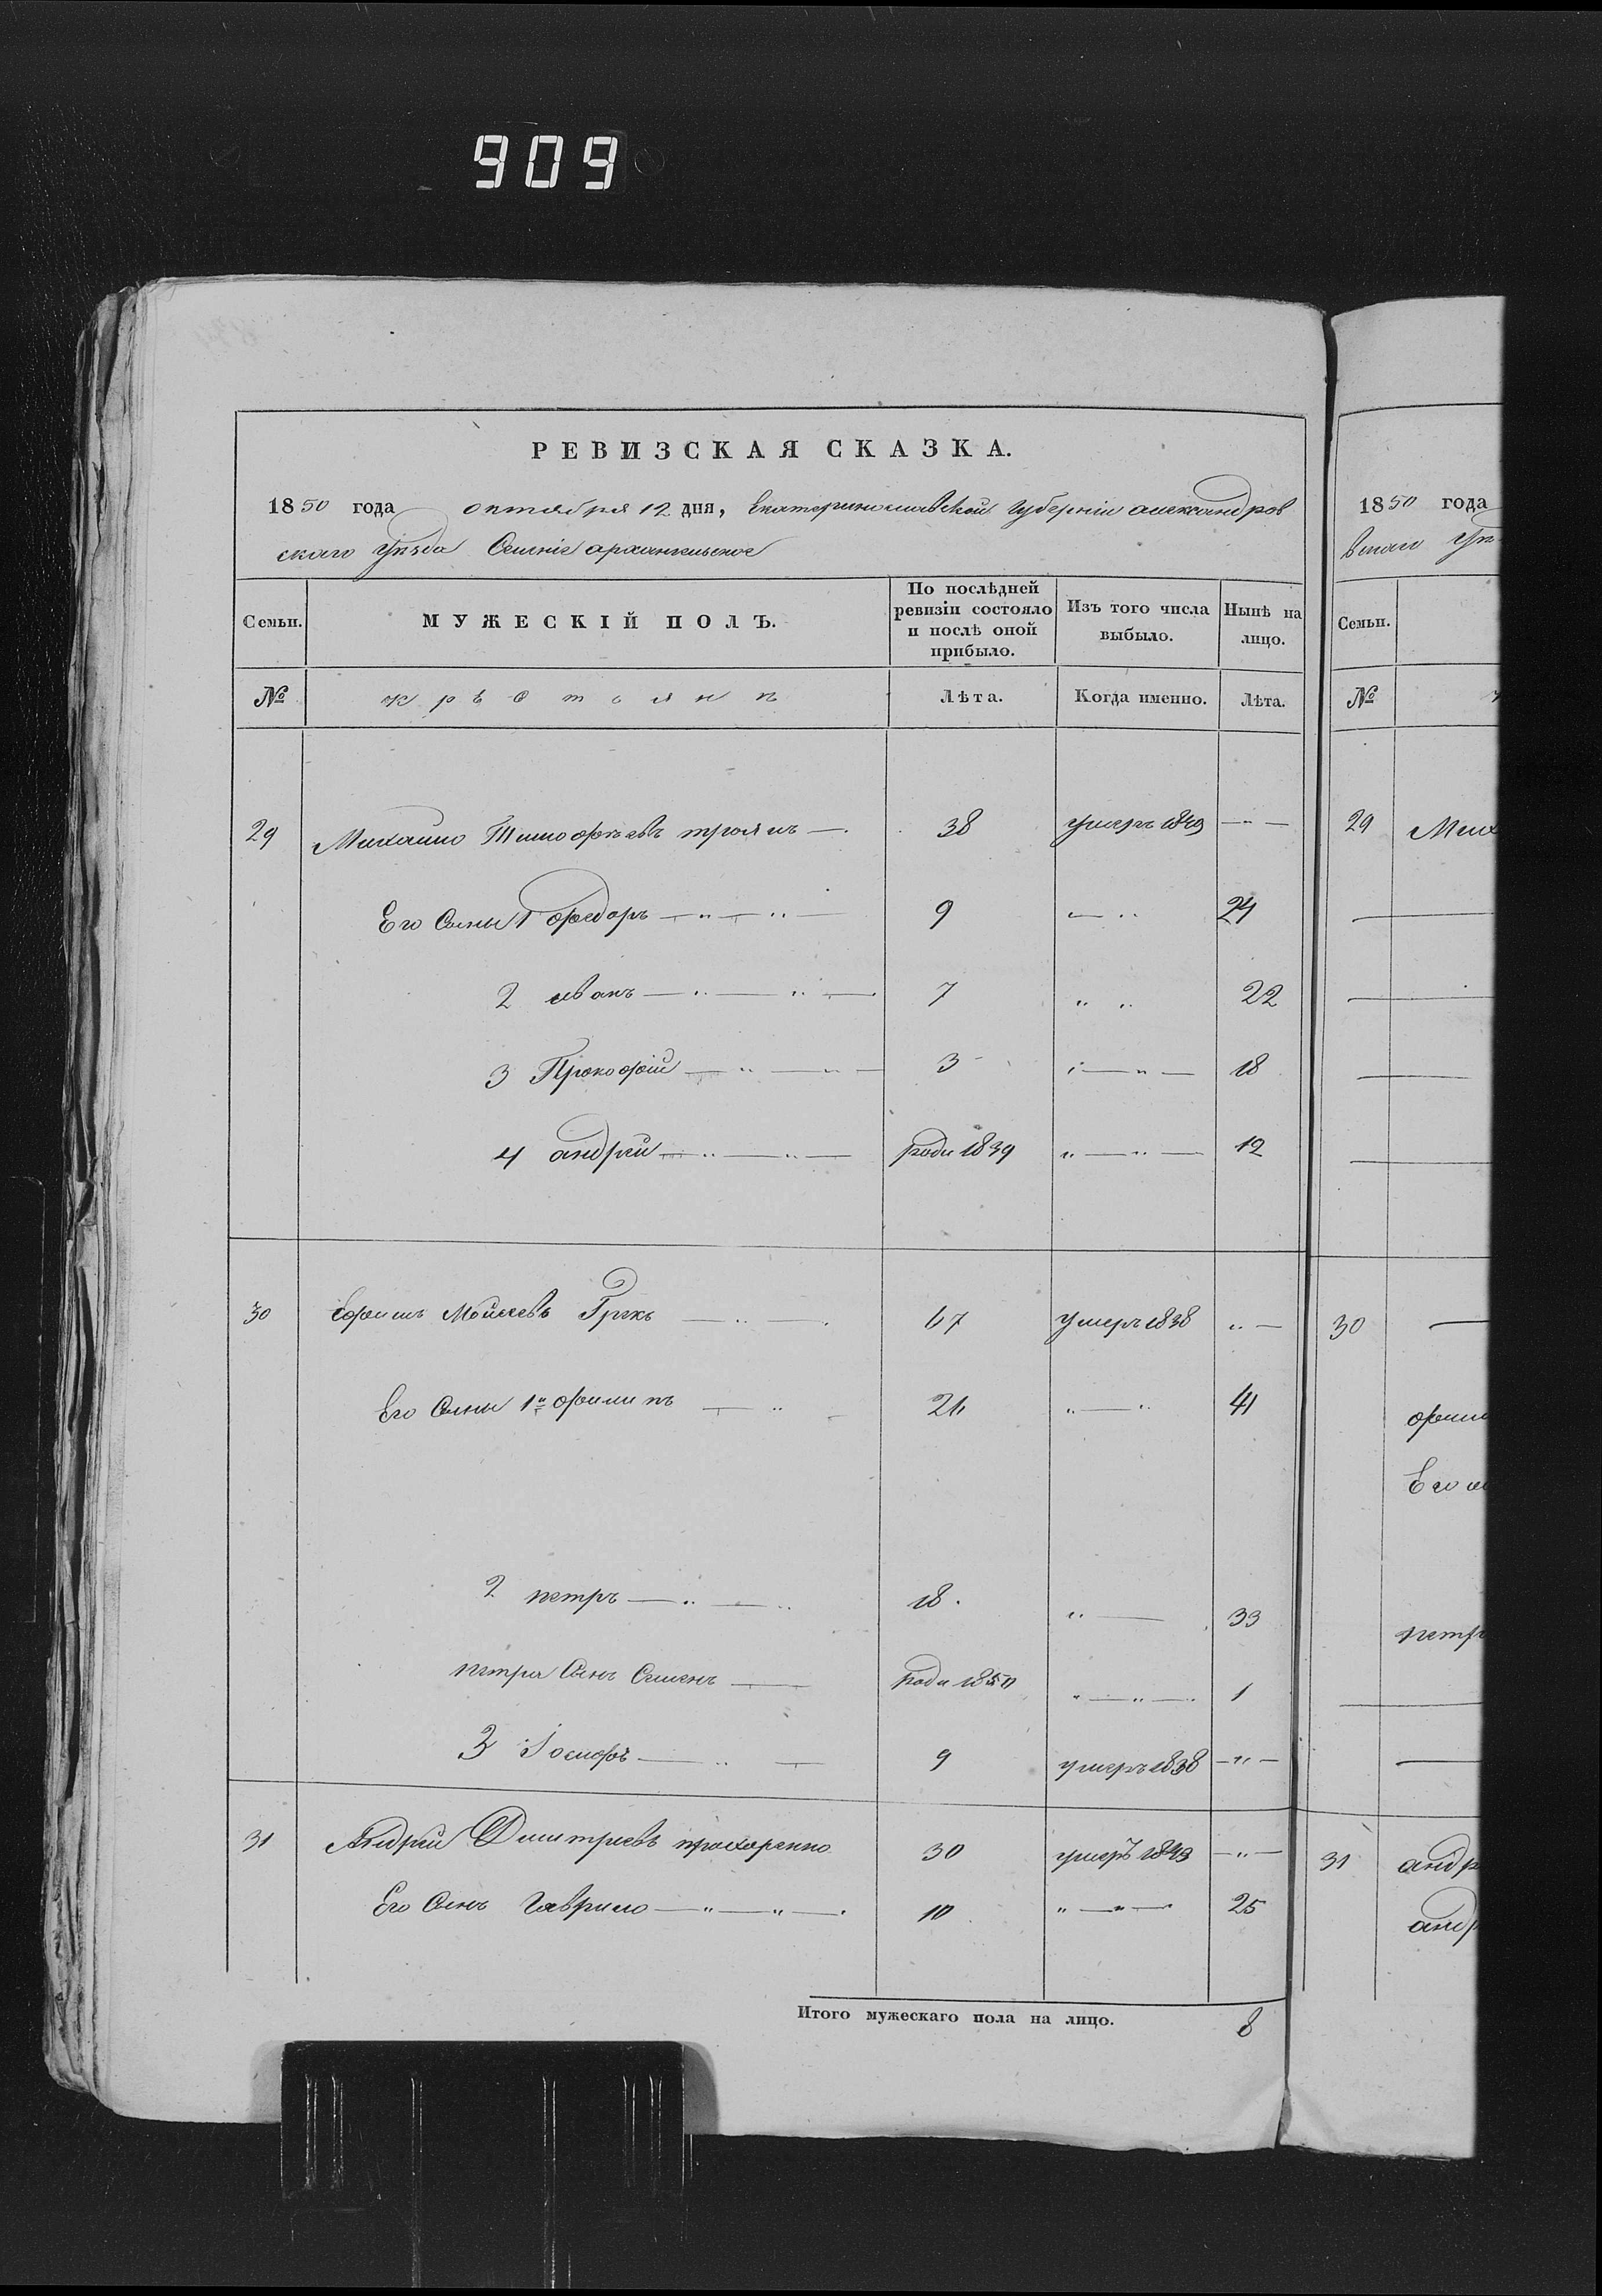 909
РЕВИЗСКАЯ СКАЗКА.
1850 года октября 12 дня, Екатеринославской губернiи александров
скаго уѣзда Селенiе архангельское
Семьи. МУЖЕСКIЙ ПОЛЪ. По послѣдней ревизiи состояло и послѣ оной прибыло. Изъ того числа выбыло. Нынѣ на лицо.
№ Лѣта. Когда именно. Лѣта.
29 Михайло Тимофѣевъ троянъ 38 умеръ 1849
Его Сыны 1 федоръ 9 24
2 иванъ 7 22
3 Прокофiй 3 18
4 андрей роди 1839 12
30 Ефимъ Мойсеевъ Грекъ 67 умеръ 1838
Его Сыны 1й филипъ 26 41
2 петръ 18. 33
петра Сынъ Семенъ роди 1850 1
3 Iосифъ 9 умеръ 1838
31 Андрей Дмитрiевъ прохоренко 30 умеръ 1843
Его Сынъ Гаврило 10 25
Итого мужескаго пола на лицо. 8
1850 года
Семьи.
№
29 Мих
30
Его
петр
31 андр
андр